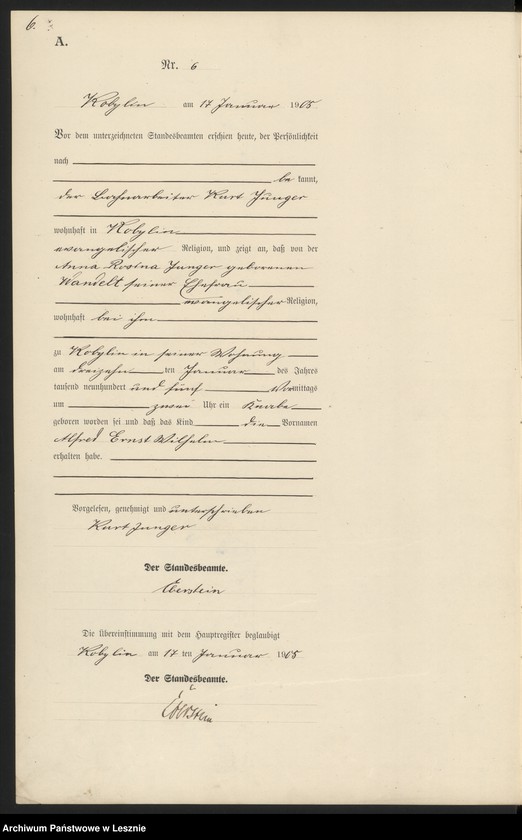 6.
A.
Nr. 6
Kobylin am 17 Januar 1905
Vor dem unterzeichneten Standesbeamten erschien heute, der Persönlichkeit
nach
be kannt,
der Bahnarbeiter Karl Junger
wohnhaft in Kobylin
evangelischer Religion, und zeigt an, daß von der
Anna Rosina Junger geborenen
Wandelt seiner Ehefrau
evangelischer Religion,
wohnhaft bei ihm
zu Kobylin in seiner Wohnung
am dreizehn ten Januar des Jahres
tausend neunhundert und fünf Vormittags
um zwei Uhr ein Knabe
geboren worden sei und daß das Kind die Vornamen
Alfred Ernst Wilhelm
erhalten habe.
Vorgelesen, genehmigt und unterschrieben
Karl Junger
Der Standesbeamte.
Eberstein
Die Übereinstimmung mit dem Hauptregister beglaubigt
Kobylin am 17 ten Januar 1905
Der Standesbeamte.
Eberstein
Archiwum Państwowe w Lesznie